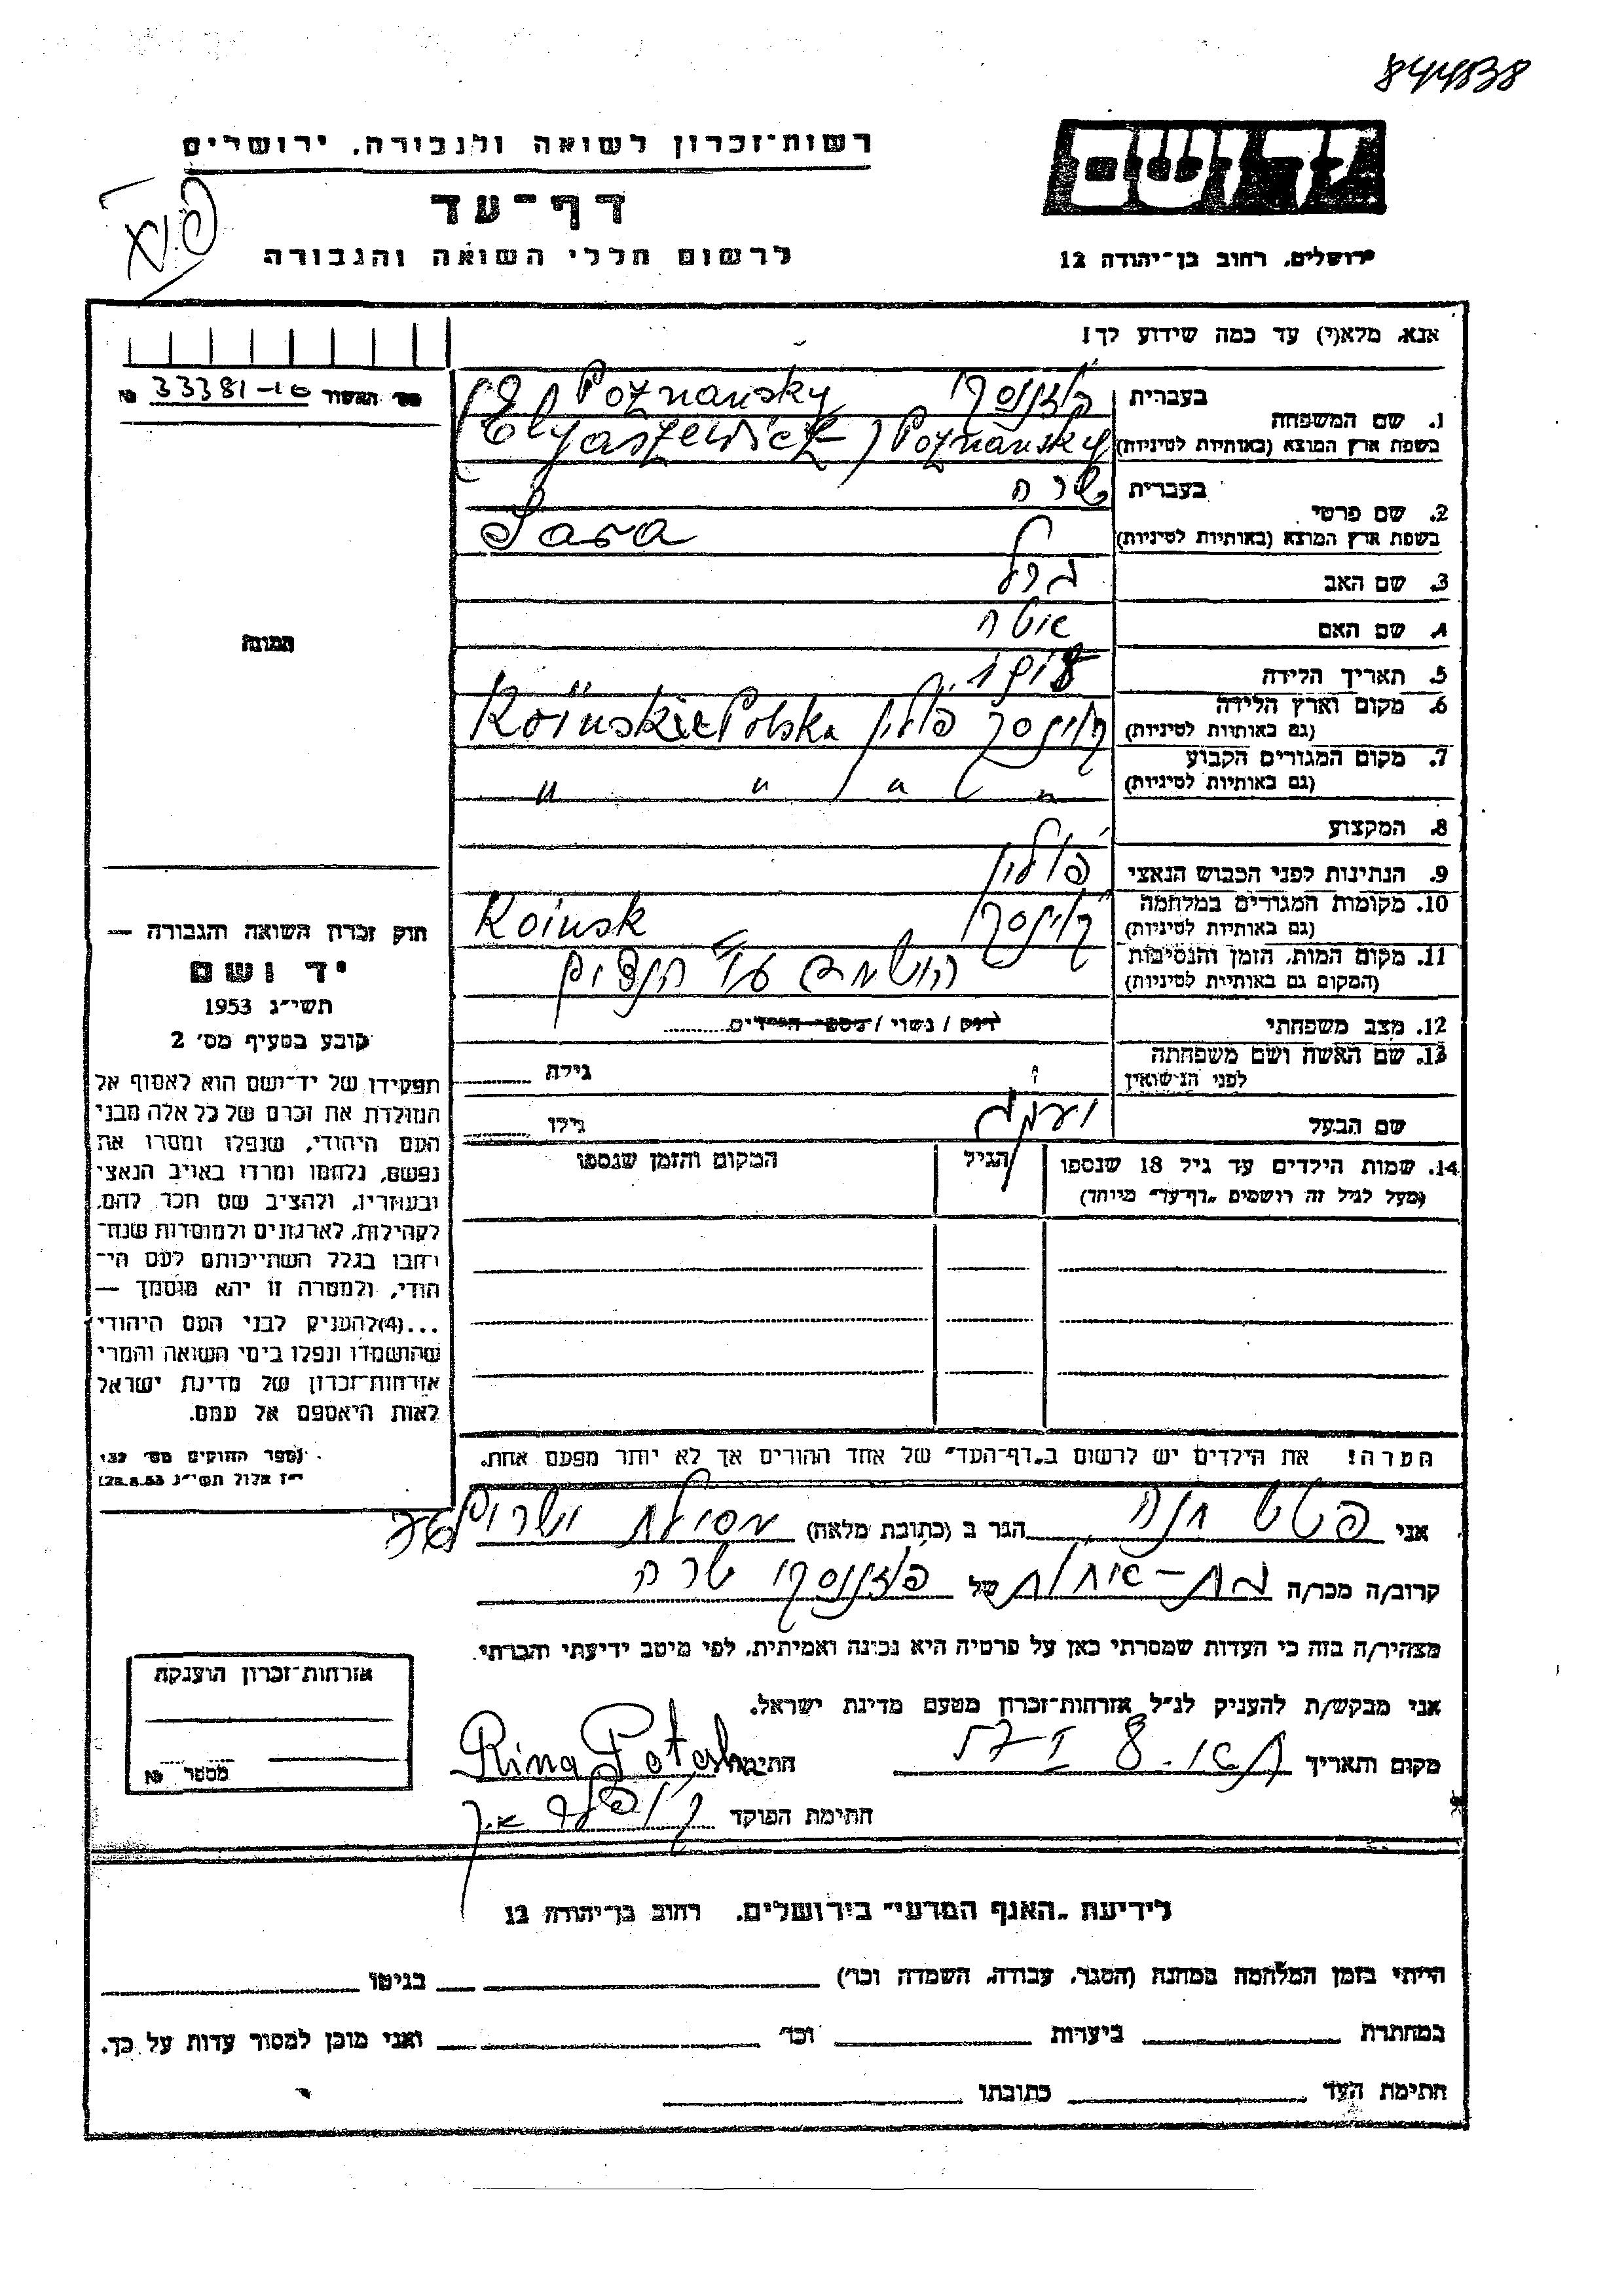 844838
רשות-זכרון לשואה ולגבורה, ירושלים
דף-עד
לרשום חללי השואה והגבורה
ירושלים, רחוב בן-יהודה 12
אנא, מלא(י) עד כמה שידוע לך!
מס' האשור 33381-10 №
1. שם המשפחה
בעברית פוזננסקי Poznansky
בשפת ארץ המוצא (באותיות לטיניות) Poznansky
2. שם פרטי
בעברית שרה
בשפת ארץ המוצא (באותיות לטיניות) Sara
3. שם האב
4. שם האם
5. תאריך הלידה
6. מקום וארץ הלידה
(גם באותיות לטיניות) פולין Koinskie Polska
7. מקום המגורים הקבוע
(גם באותיות לטיניות) " " " "
8. המקצוע
9. הנתינות לפני הכבוש הנאצי פולין
10. מקומות המגורים במלחמה
(גם באותיות לטיניות) Koinsk
11. מקום המות, הזמן והנסיבות
(המקום גם באותיות לטיניות) הושמדה ע"י הנצים
12. מצב משפחתי רווק / נשוי / מספר הילדים
13. שם האשה ושם משפחתה
לפני הנישואין ? גילה
שם הבעל יעקב גילו
14. שמות הילדים עד גיל 18 שנספו הגיל המקום והזמן שנספו
(מעל לגיל זה רושמים "דף-עד" מיוחד)
הערה: את הילדים יש לרשום ב"דף-העד" של אחד ההורים אך לא יותר מפעם אחת.
התמונה
חוק זכרון השואה והגבורה —
יד ושם
תשי"ג 1953
קובע בסעיף מס' 2
תפקידו של יד-ושם הוא לאסוף אל
המולדת את זכרם של כל אלה מבני
העם היהודי, שנפלו ומסרו את
נפשם, נלחמו ומרדו באויב הנאצי
ובעוזריו, ולהציב שם וזכר להם,
לקהילות, לארגונים ולמוסדות שנח-
רבו בגלל השתייכותם לעם הי-
הודי, ולמטרה זו יהא מוסמך —
...(4) להעניק לבני העם היהודי
שהושמדו ונפלו בימי השואה והמרי
אזרחות-זכרון של מדינת ישראל
לאות היאספם אל עמם.
(ספר החוקים מס' 132,
י"ז אלול תשי"ג 28.8.53)
אני פטט חנה הגר ב (כתובת מלאה) מסילת ישרים
קרוב/ה מכר/ה בת-אחות של פוזננסקי שרה
מצהיר/ה בזה כי העדות שמסרתי כאן על פרטיה היא נכונה ואמיתית, לפי מיטב ידיעתי והכרתי.
אני מבקש/ת להעניק לנ"ל אזרחות-זכרון מטעם מדינת ישראל.
מקום ותאריך חתימה
חתימת הפוקד
אזרחות-זכרון הוענקה
מספר №
לידיעת "האגף המדעי" בירושלים, רחוב בן-יהודה 12
הייתי בזמן המלחמה במחנה (הסגר, עבודה, השמדה וכו') בגיטו
במחתרת ביערות וכו' ואני מוכן למסור עדות על כך.
חתימת העד כתובתו